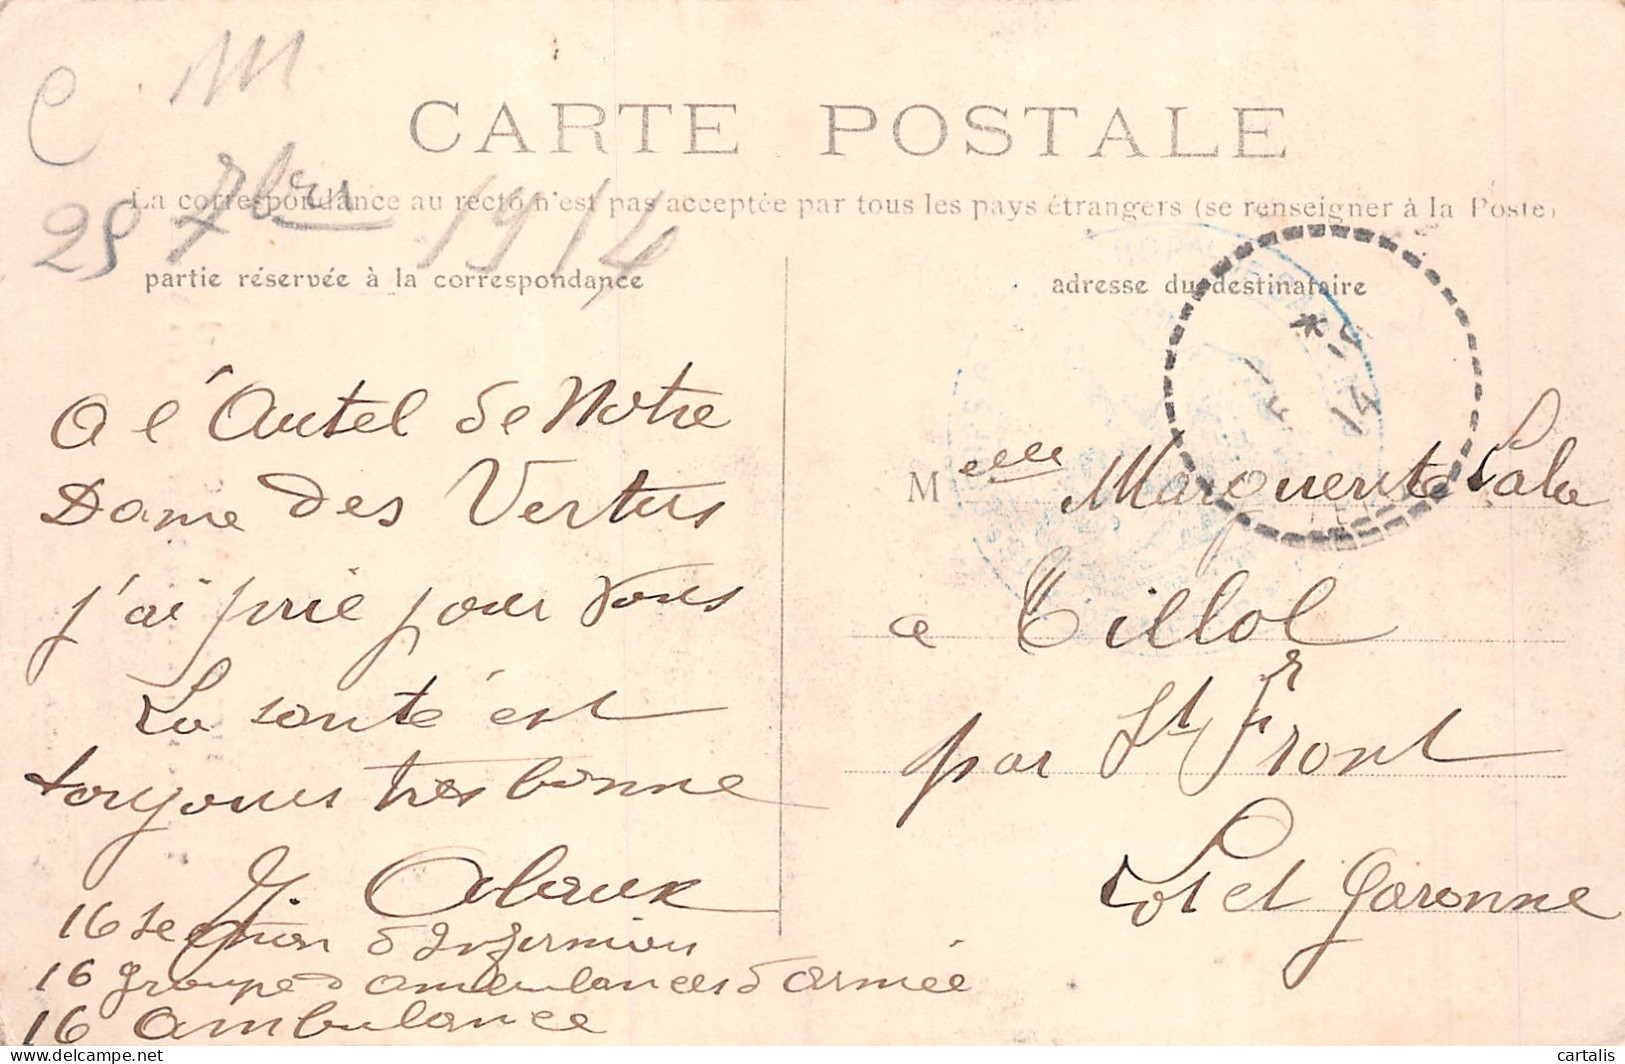 C. M
CARTE POSTALE
La correspondance au recto n'est pas acceptée par tous les pays étrangers (se renseigner à la Poste)
25 7bre 1914
partie réservée à la correspondance
A l'Autel de Notre
Dame des Vertus
j'ai prié pour vous
La santé est
toujours très bonne
16 section d'Infirmiers
16 groupe d'ambulances d'armée
16 ambulance
adresse du destinataire
14
Melle Marguerite
a Tillol
par St Front
Lot et Garonne
cartalis